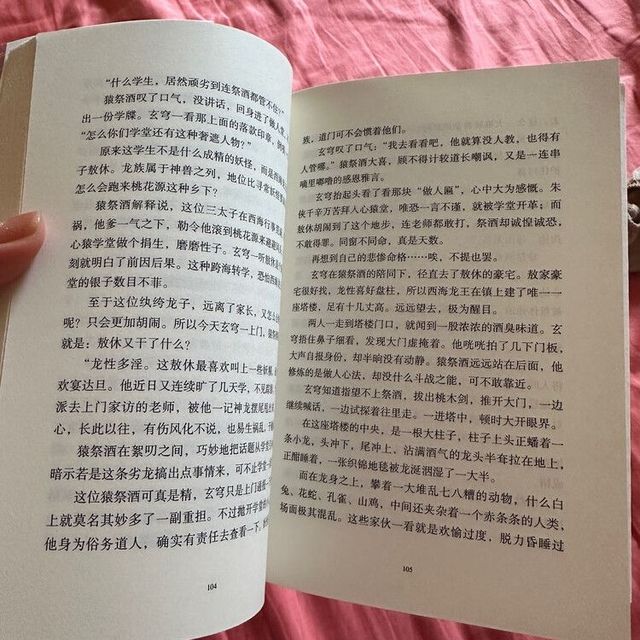 “什么学生，居然顽劣到连祭酒都管不住？”
猿祭酒叹了口气，没讲话，回身进了做人堂，
出一份学牒。玄穹一看那上面的落款印章，
“怎么你们学堂还有这种奢遮人物？”
原来这学生不是什么成精的妖怪，而是西海
敖休。龙族属于神兽之列，地位比寻常妖怪
怎么会跑来桃花源这种乡下？
猿祭酒解释说，这位三太子在西海行事
祸，他爹一气之下，勒令他滚到桃花源来避避
心猿学堂做个捐生，磨磨性子。玄穹一听
刻就明白了前因后果。这种跨海转学，恐怕西
堂的银子数目不菲。
至于这位纨绔龙子，远离了家长，又怎么
呢？只会更加胡闹。所以今天玄穹一上门，
就是：敖休又干了什么？
“龙性多淫。这敖休最喜欢叫上一些
欢宴达旦。他近日又连续旷了几天学，不见
派去上门家访的老师，被他一记神龙摆尾
长，此以往，有伤风化不说，也易生祸乱，
猿祭酒在絮叨之间，巧妙地把话题从学
暗示若是这条劣龙搞出点事情来，可不止学堂
这位猿祭酒可真是精，玄穹只是上门通
上就莫名其妙多了一副重担。不过抛开学
他身为俗务道人，确实有责任去查看一下。
104
族，道门可不会惯着他们。
玄穹叹了口气：“我去看看吧，他就算没人教，也得有
人管哪。”猿祭酒大喜，顾不得计较道长嘲讽，又是一连串
嘀里嘟噜的感恩雅言。
玄穹抬起头看了看那块“做人匾”，心中大为感慨。朱
侠千辛万苦拜入心猿堂，唯恐一言不谨，就被学堂开革；而
敖休胡闹到了这个地步，连老师都敢打，祭酒却诚惶诚恐，
不敢得罪。同窗不同命，真是天数。
再想到自己的悲惨命格……唉，不提也罢。
玄穹在猿祭酒的陪同下，径直去了敖休的豪宅。敖家豪
宅很好找，龙性喜好盘柱，所以西海龙王在镇上建了唯一一
座塔楼，足有十几丈高。远远望去，极为醒目。
两人一走到塔楼门口，就闻到一股浓浓的酒臭味道。玄
穹捂住鼻子细看，发现大门虚掩着。他咣咣拍了几下门板，
大声自报身份，却半晌没有动静。猿祭酒远远站在后面，他
修炼的是做人心法，却没什么斗战之能，可不敢靠近。
玄穹知道指望不上祭酒，拔出桃木剑，推开大门，一边
继续喊话，一边试探着往里走。一进塔中，顿时大开眼界。
在这座塔楼的中央，是一根大柱子，柱子上头正蟠着一
条小龙，头冲下，尾冲上，沾满酒气的龙头半套拉在地上，
正酣睡着，一张织锦地毯被龙涎洇湿了一大半。
而在龙身之上，攀着一大堆乱七八糟的动物，什么白
兔、花蛇、孔雀、山鸡，中间还夹杂着一个赤条条的人类，
场面极其混乱。这些家伙一看就是欢愉过度，脱力昏睡过
105